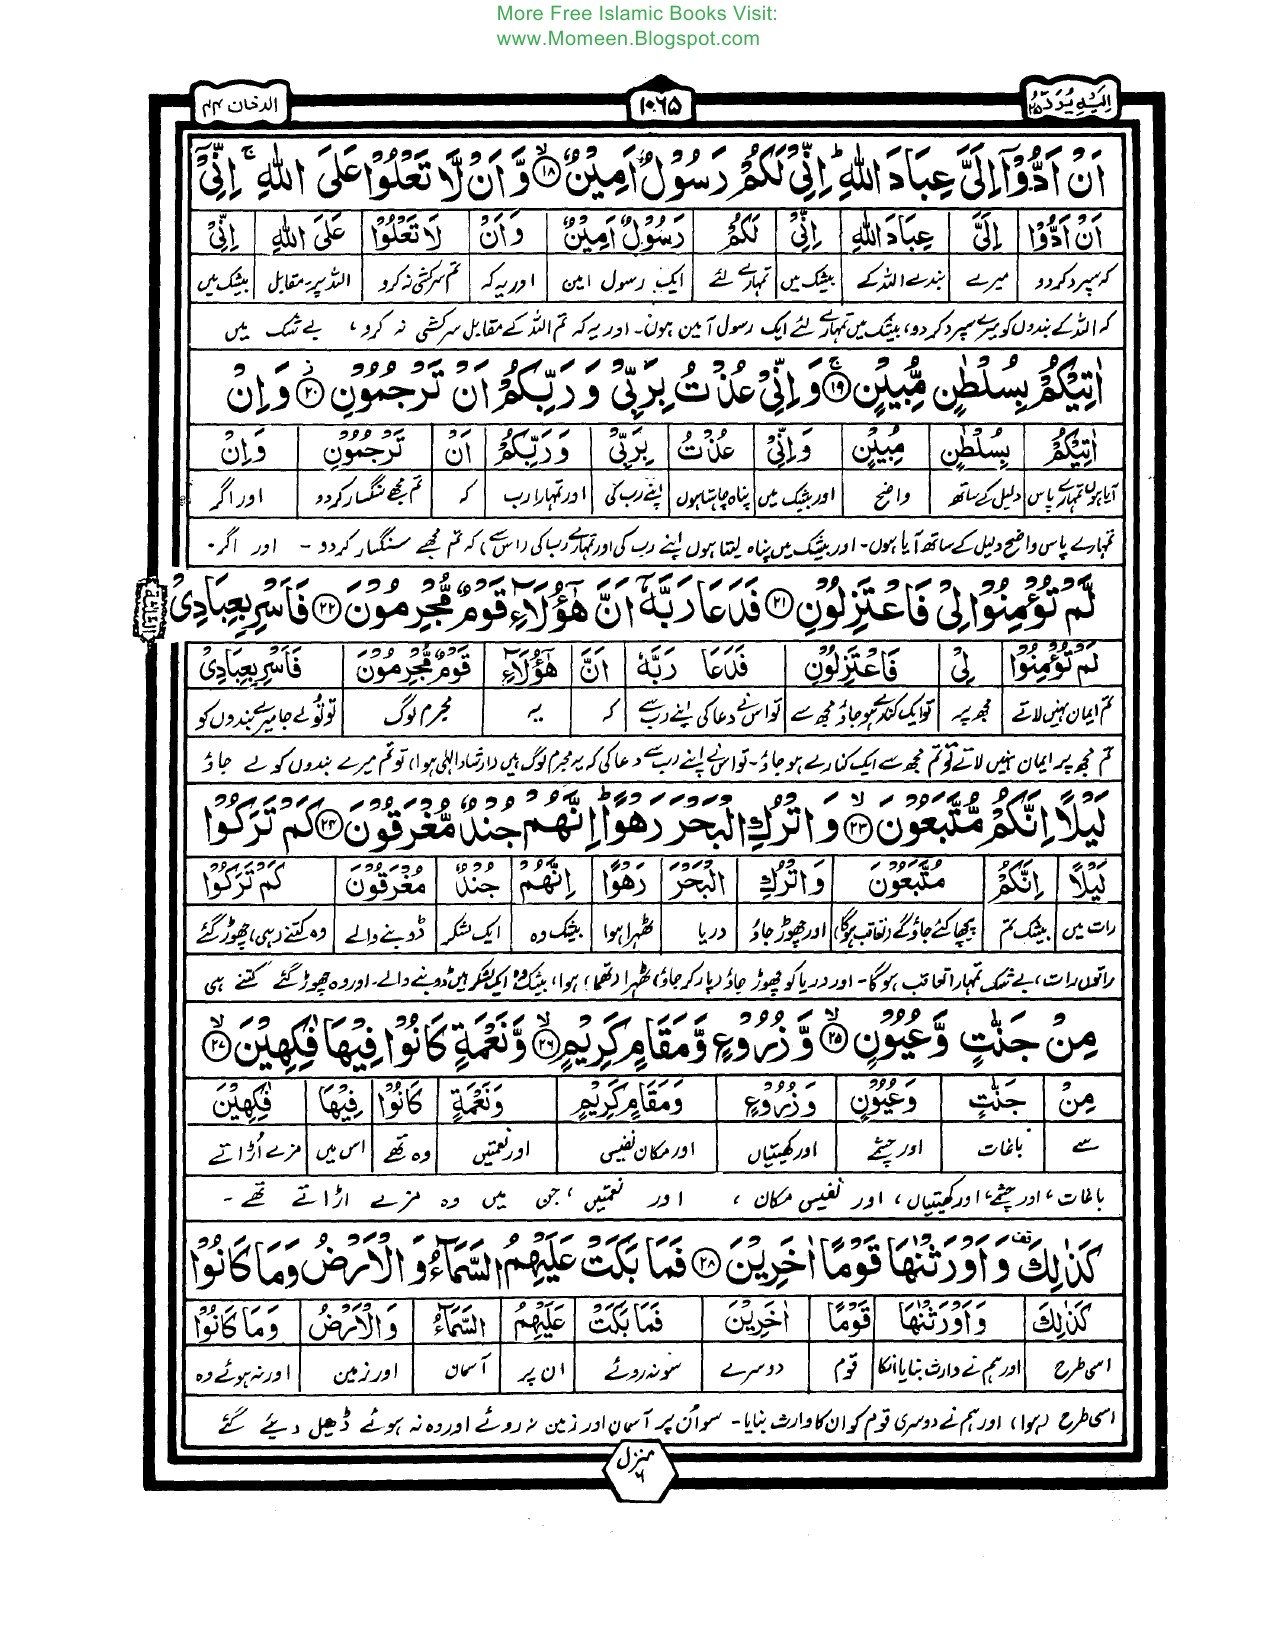 More Free Islamic Books Visit:
www.Momeen.Blogspot.com
اِلَیْهِ یُرَدُّ ۲۵
۱۰۶۵
الدخان ۴۴
اَنْ اَدُّوْۤا اِلَیَّ عِبَادَ اللّٰهِ ؕ اِنِّیْ لَكُمْ رَسُوْلٌ اَمِیْنٌ ۙ۱۸ وَّ اَنْ لَّا تَعْلُوْا عَلَى اللّٰهِ ۚ اِنِّیْۤ
اَنْ اَدُّوْا اِلَیَّ عِبَادَ اللّٰهِ اِنِّیْ لَكُمْ رَسُوْلٌ اَمِیْنٌ وَ اَنْ لَا تَعْلُوْا عَلَى اللّٰهِ اِنِّیْ
کہ سپرد کردو میرے بندے اللہ کے بیشک میں تمہارے لئے ایک رسول امین اور یہ کہ تم سرکشی نہ کرو اللہ پر، مقابل بیشک میں
کہ اللہ کے بندوں کو میرے سپرد کردو، بیشک میں تمہارے لئے ایک رسول امین ہوں۔ اور یہ کہ تم اللہ کے مقابل سرکشی نہ کرو، بے شک میں
اٰتِیْكُمْ بِسُلْطٰنٍ مُّبِیْنٍ ۚ۱۹ وَ اِنِّیْ عُذْتُ بِرَبِّیْ وَ رَبِّكُمْ اَنْ تَرْجُمُوْنِ ۲۰ وَ اِنْ
اٰتِیْكُمْ بِسُلْطٰنٍ مُبِیْنٍ وَ اِنِّیْ عُذْتُ بِرَبِّیْ وَ رَبِّكُمْ اَنْ تَرْجُمُوْنِ وَ اِنْ
آیا ہوں تمہارے پاس دلیل کے ساتھ واضح اور بیشک میں پناہ چاہتا ہوں اپنے رب کی اور تمہارا رب کہ تم مجھے سنگسار کردو اور اگر
تمہارے پاس واضح دلیل کے ساتھ آیا ہوں۔ اور بیشک میں پناہ لیتا ہوں اپنے رب کی اور تمہارے رب کی (اس سے) کہ تم مجھے سنگسار کردو ۔ اور اگر
لَّمْ تُؤْمِنُوْا لِیْ فَاعْتَزِلُوْنِ ۲۱ فَدَعَا رَبَّهٗۤ اَنَّ هٰۤؤُلَآءِ قَوْمٌ مُّجْرِمُوْنَ ۲۲ فَاَسْرِ بِعِبَادِیْ
لَمْ تُؤْمِنُوْا لِیْ فَاعْتَزِلُوْنِ فَدَعَا رَبَّهٗ اَنَّ هٰۤؤُلَآءِ قَوْمٌ مُّجْرِمُوْنَ فَاَسْرِ بِعِبَادِیْ
تم ایمان نہیں لاتے مجھ پر تو ایک کنارے ہو جاؤ مجھ سے تو اس نے دعا کی اپنے رب سے کہ یہ مجرم لوگ تو تُو لے جا میرے بندوں کو
تم مجھ پر ایمان نہیں لاتے تو تم مجھ سے ایک کنارے ہو جاؤ۔ تو اس نے اپنے رب سے دعا کی کہ یہ مجرم لوگ ہیں (ارشاد الٰہی ہوا) تو تم میرے بندوں کو لے جاؤ
لَیْلًا اِنَّكُمْ مُّتَّبَعُوْنَ ۙ۲۳ وَ اتْرُكِ الْبَحْرَ رَهْوًا ؕ اِنَّهُمْ جُنْدٌ مُّغْرَقُوْنَ ۲۴ كَمْ تَرَكُوْا
لَیْلًا اِنَّكُمْ مُتَّبَعُوْنَ وَ اتْرُكِ الْبَحْرَ رَهْوًا اِنَّهُمْ جُنْدٌ مُغْرَقُوْنَ كَمْ تَرَكُوْا
رات میں بیشک تم پیچھا کئے جاؤ گے (تعاقب ہوگا) اور چھوڑ جاؤ دریا ٹھہرا ہوا بیشک وہ ایک لشکر ڈوبنے والے وہ کتنے (ہی) چھوڑ گئے
راتوں رات، بے شک تمہارا تعاقب ہوگا۔ اور دریا کو چھوڑ جاؤ (پار کر جاؤ) ٹھہرا (تھما) ہوا، بیشک وہ ایک لشکر ہیں ڈوبنے والے۔ اور وہ چھوڑ گئے کتنے ہی
مِنْ جَنّٰتٍ وَّ عُیُوْنٍ ۙ۲۵ وَّ زُرُوْعٍ وَّ مَقَامٍ كَرِیْمٍ ۙ۲۶ وَّ نَعْمَةٍ كَانُوْا فِیْهَا فٰكِهِیْنَ ۙ۲۷
مِنْ جَنّٰتٍ وَ عُیُوْنٍ وَ زُرُوْعٍ وَ مَقَامٍ كَرِیْمٍ وَ نَعْمَةٍ كَانُوْا فِیْهَا فٰكِهِیْنَ
سے باغات اور چشمے اور کھیتیاں اور مکان نفیس اور نعمتیں وہ تھے اس میں مزے اُڑاتے
باغات، اور چشمے، اور کھیتیاں، اور نفیس مکان، اور نعمتیں، جن میں وہ مزے اڑاتے تھے ۔
كَذٰلِكَ ۫ وَ اَوْرَثْنٰهَا قَوْمًا اٰخَرِیْنَ ۲۸ فَمَا بَكَتْ عَلَیْهِمُ السَّمَآءُ وَ الْاَرْضُ وَ مَا كَانُوْا
كَذٰلِكَ وَ اَوْرَثْنٰهَا قَوْمًا اٰخَرِیْنَ فَمَا بَكَتْ عَلَیْهِمُ السَّمَآءُ وَ الْاَرْضُ وَ مَا كَانُوْا
اسی طرح اور ہم نے وارث بنایا انکا قوم دوسرے سو نہ روئے ان پر آسمان اور زمین اور نہ ہوئے وہ
اسی طرح (ہوا) اور ہم نے دوسری قوم کو ان کا وارث بنایا۔ سو اُن پر آسمان اور زمین نہ روئے اور وہ نہ ہوئے ڈھیل دیئے گئے
منزل ۶